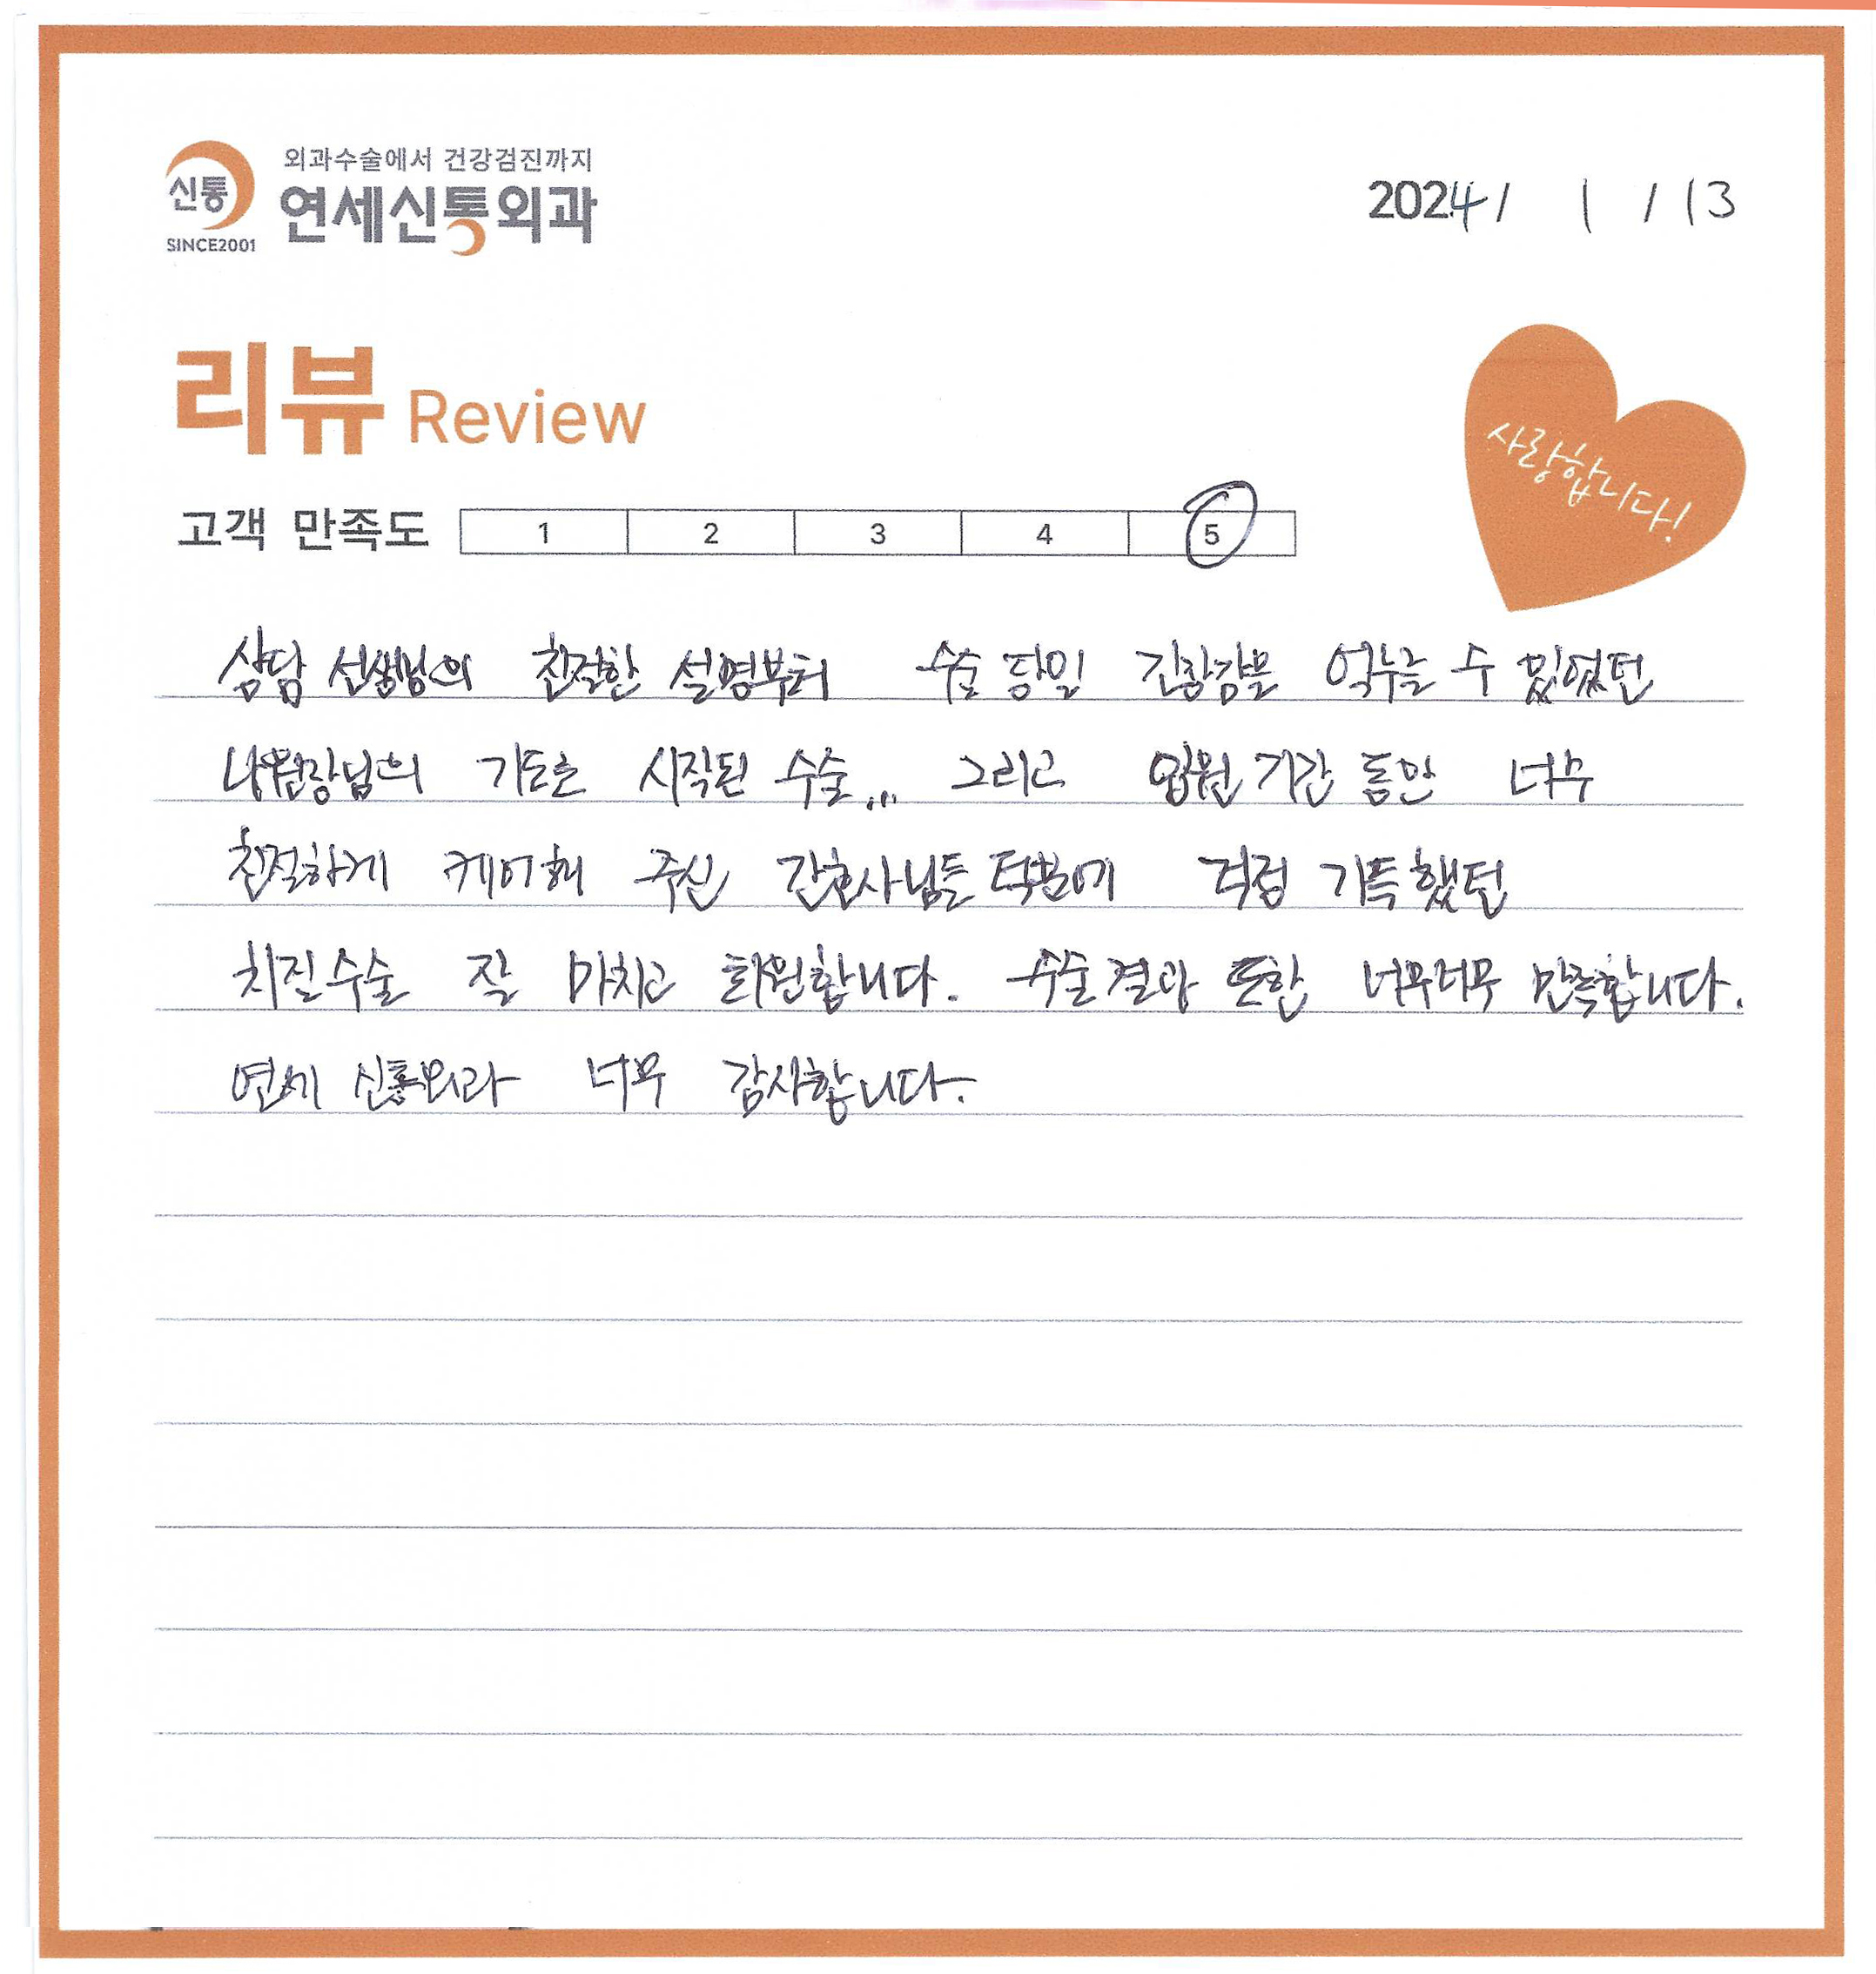 신통
SINCE2001
외과수술에서 건강검진까지
연세신통외과
2024 / 1 / 13
리뷰 Review
사랑합니다!
고객 만족도 1 2 3 4 5
상담 선생님의 친절한 설명부터 수술 당일 긴장감을 억누를 수 있었던
나원장님의 기도로 시작된 수술... 그리고 입원 기간 동안 너무
친절하게 케어해 주신 간호사님들 덕분에 걱정 가득했던
치질수술 잘 마치고 퇴원합니다. 수술결과 또한 너무너무 만족합니다.
연세 신통외과 너무 감사합니다.